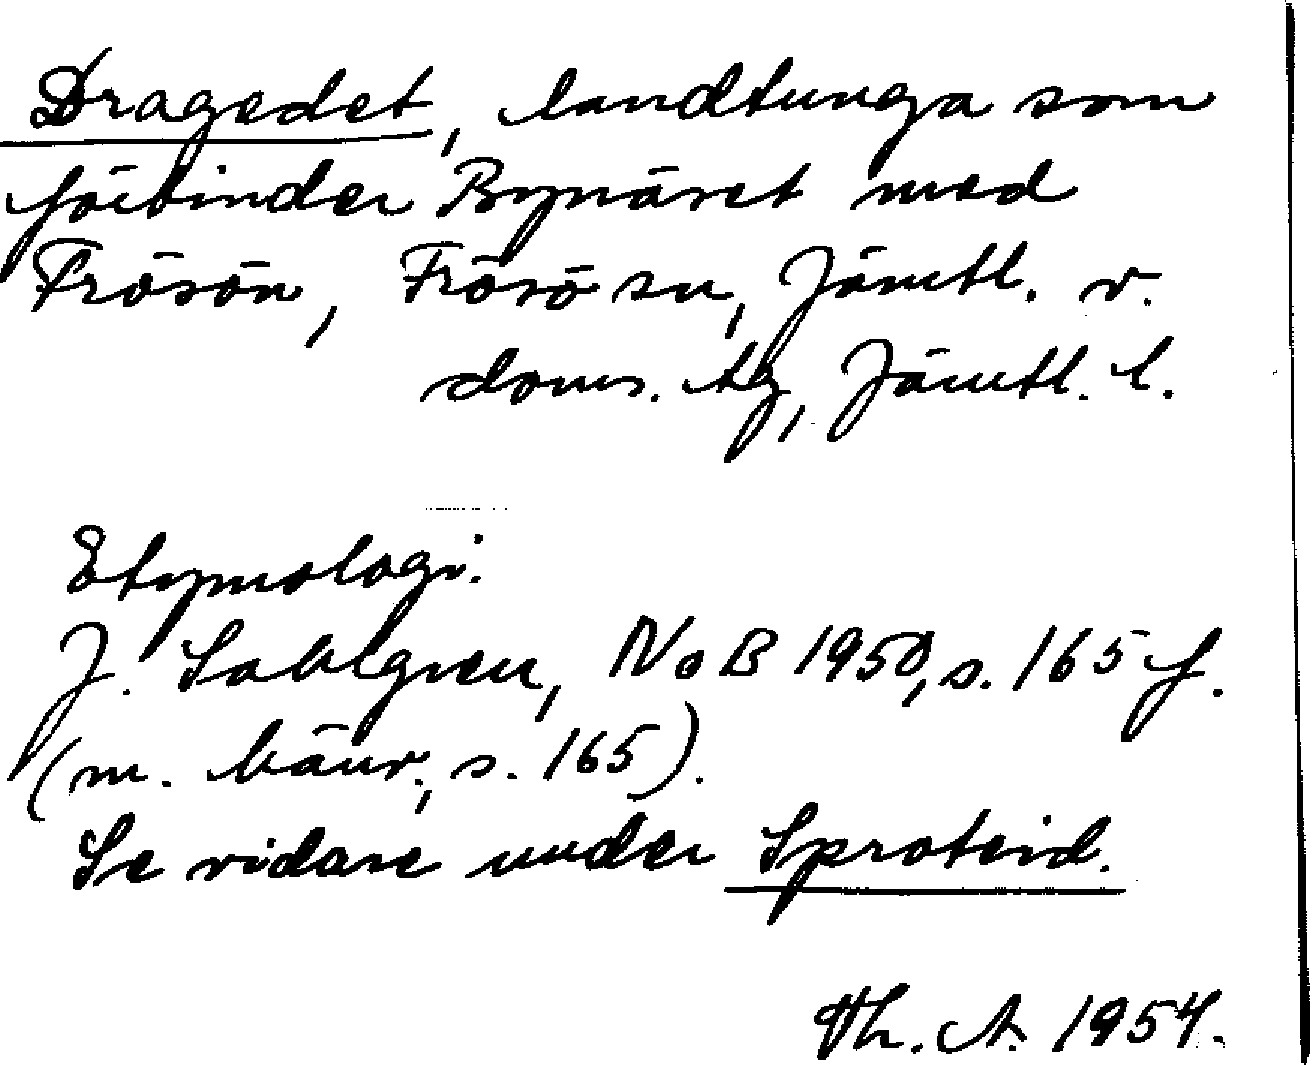 Dragedet, landtunga som
förbinder Bynäset med
Frösön, Frösö sn, Jämtl. v.
doms. tg, Jämtl. l.
Etymologi.
J. Sahlgren, NoB 1950, s. 165 f.
(m. hänv., s. 165).
Se vidare under Sproteid.
Th. A. 1954.